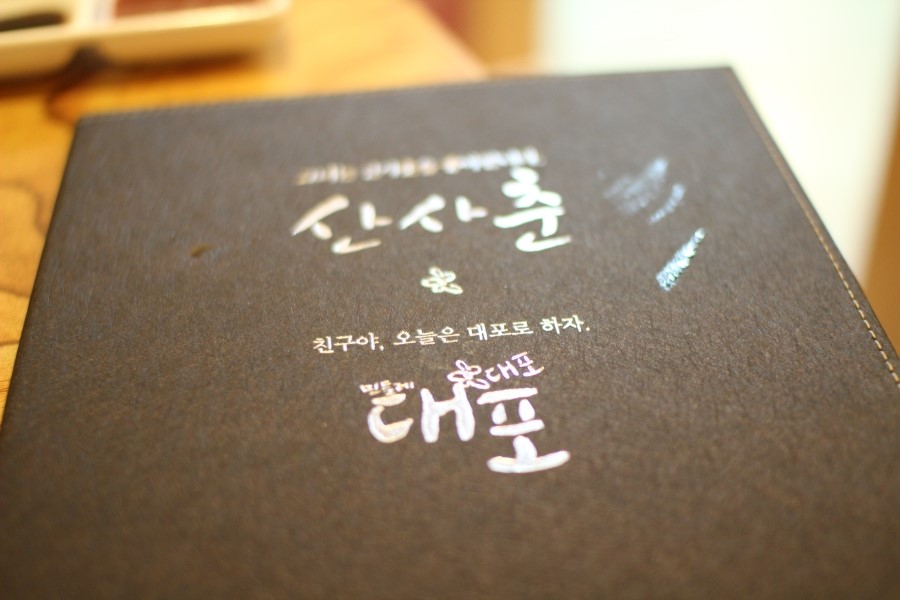 산사춘
친구야, 오늘은 대포로 하자.
민들레
대포
대포